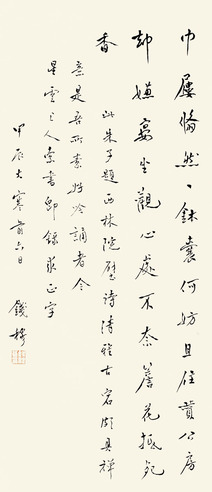 巾屨翛然一鉢囊何妨且住贊公房
却嫌宴坐觀心處不奈簷花抵死
香
此朱子題西林院壁詩清雅古宕頗具禪
意是吾所素吟誦者今
星雲上人索書即錄求正字
甲辰大寒前六日
錢穆